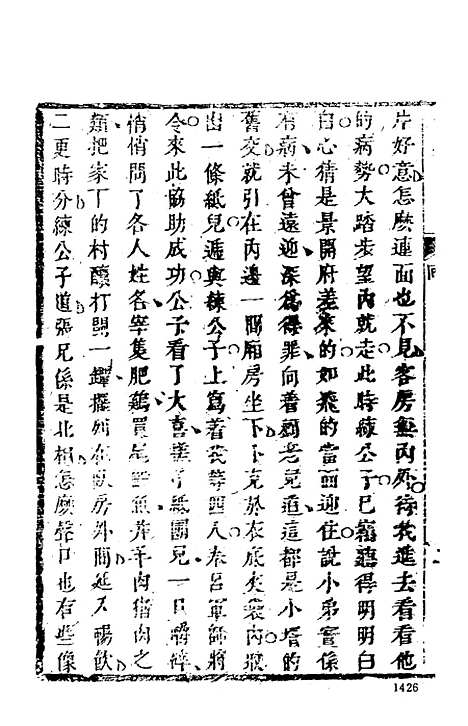 片好意怎麽連面也不見客房內外待我進去看看他
的病勢大踏步望內就走此時練公子已竊聽得明明白
白心猜是景開府差來的如飛的當面迎住說小弟實係
有病未曾遠迎深爲得罪向着顧老兒道這都是小壻的
舊交就引在內邊一間廂房坐下卜克於衣底夾袋內取
出一條紙兒遞與練公子上寫着我等四人奉呂軍師將
令來此協助成功公子看了大喜紙團兒一口嚼碎
悄悄問了各人姓名宰隻肥鷄買尾魚并羊肉猪肉之
類把家丁的村釀打開一罈擺列在臥房外間延入暢飲
二更時分練公子道張兄係是北相怎麽聲口也有些像
1426